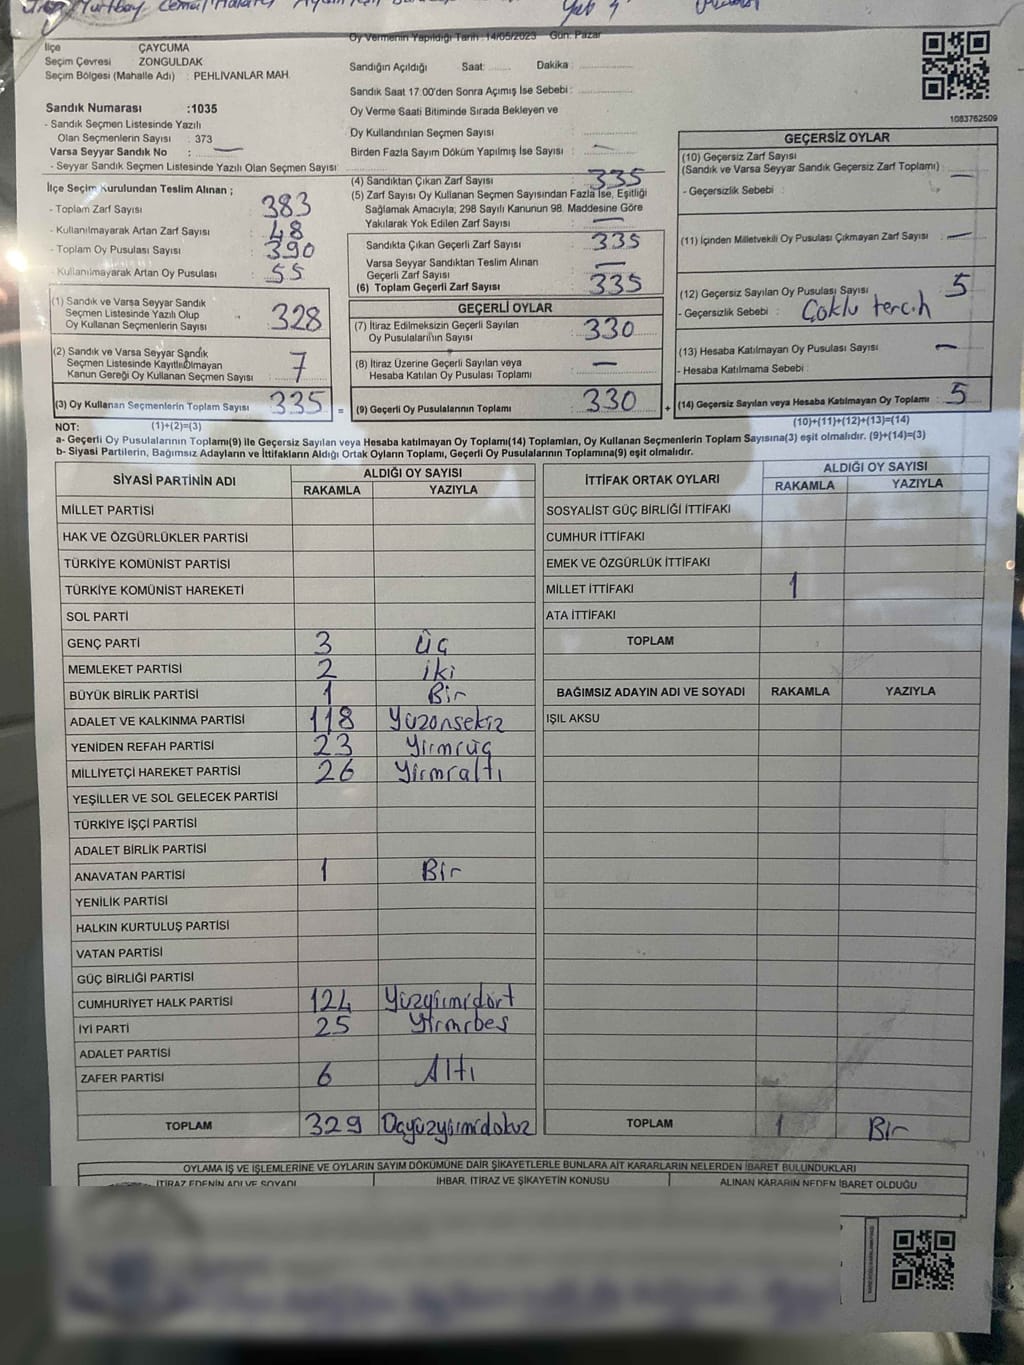 Yurtbay Cemal
İlçe ÇAYCUMA
Seçim Çevresi ZONGULDAK
Seçim Bölgesi (Mahalle Adı) : PEHLİVANLAR MAH.
Sandık Numarası :1035
- Sandık Seçmen Listesinde Yazılı
Olan Seçmenlerin Sayısı : 373
Varsa Seyyar Sandık No : —
- Seyyar Sandık Seçmen Listesinde Yazılı Olan Seçmen Sayısı :
İlçe Seçim Kurulundan Teslim Alınan ;
- Toplam Zarf Sayısı 383
- Kullanılmayarak Artan Zarf Sayısı 48
- Toplam Oy Pusulası Sayısı 390
- Kullanılmayarak Artan Oy Pusulası 55
(1) Sandık ve Varsa Seyyar Sandık
Seçmen Listesinde Yazılı Olup
Oy Kullanan Seçmenlerin Sayısı 328
(2) Sandık ve Varsa Seyyar Sandık
Seçmen Listesinde Kayıtlı Olmayan
Kanun Gereği Oy Kullanan Seçmen Sayısı 7
(3) Oy Kullanan Seçmenlerin Toplam Sayısı 335 =
Oy Vermenin Yapıldığı Tarih : 14/05/2023 Gün: Pazar
Sandığın Açıldığı Saat: ........ Dakika : ................
Sandık Saat 17.00'den Sonra Açımış İse Sebebi : ................
Oy Verme Saati Bitiminde Sırada Bekleyen ve
Oy Kullandırılan Seçmen Sayısı : ................
Birden Fazla Sayım Döküm Yapılmış İse Sayısı : —
(4) Sandıktan Çıkan Zarf Sayısı 335
(5) Zarf Sayısı Oy Kullanan Seçmen Sayısından Fazla İse, Eşitliği
Sağlamak Amacıyla, 298 Sayılı Kanunun 98. Maddesine Göre
Yakılarak Yok Edilen Zarf Sayısı : —
Sandıkta Çıkan Geçerli Zarf Sayısı : 335
Varsa Seyyar Sandıktan Teslim Alınan
Geçerli Zarf Sayısı : —
(6) Toplam Geçerli Zarf Sayısı : 335
GEÇERLİ OYLAR
(7) İtiraz Edilmeksizin Geçerli Sayılan
Oy Pusulalarının Sayısı : 330
(8) İtiraz Üzerine Geçerli Sayılan veya
Hesaba Katılan Oy Pusulası Toplamı : —
(9) Geçerli Oy Pusulalarının Toplamı : 330 +
1083762509
GEÇERSİZ OYLAR
(10) Geçersiz Zarf Sayısı
(Sandık ve Varsa Seyyar Sandık Geçersiz Zarf Toplamı) : —
- Geçersizlik Sebebi :
(11) İçinden Milletvekili Oy Pusulası Çıkmayan Zarf Sayısı : —
(12) Geçersiz Sayılan Oy Pusulası Sayısı : 5
- Geçersizlik Sebebi : Çoklu tercih
(13) Hesaba Katılmayan Oy Pusulası Sayısı : —
- Hesaba Katılmama Sebebi :
(14) Geçersiz Sayılan veya Hesaba Katılmayan Oy Toplamı : 5
NOT: (1)+(2)=(3) (10)+(11)+(12)+(13)=(14)
a- Geçerli Oy Pusulalarının Toplamı(9) ile Geçersiz Sayılan veya Hesaba katılmayan Oy Toplamı(14) Toplamları, Oy Kullanan Seçmenlerin Toplam Sayısına(3) eşit olmalıdır. (9)+(14)=(3)
b- Siyasi Partilerin, Bağımsız Adayların ve İttifakların Aldığı Ortak Oyların Toplamı, Geçerli Oy Pusulalarının Toplamına(9) eşit olmalıdır.
SİYASİ PARTİNİN ADI ALDIĞI OY SAYISI
RAKAMLA YAZIYLA
MİLLET PARTİSİ
HAK VE ÖZGÜRLÜKLER PARTİSİ
TÜRKİYE KOMÜNİST PARTİSİ
TÜRKİYE KOMÜNİST HAREKETİ
SOL PARTİ
GENÇ PARTİ 3 üç
MEMLEKET PARTİSİ 2 iki
BÜYÜK BİRLİK PARTİSİ 1 Bir
ADALET VE KALKINMA PARTİSİ 118 Yüzonsekiz
YENİDEN REFAH PARTİSİ 23 Yirmiüç
MİLLİYETÇİ HAREKET PARTİSİ 26 Yirmialtı
YEŞİLLER VE SOL GELECEK PARTİSİ
TÜRKİYE İŞÇİ PARTİSİ
ADALET BİRLİK PARTİSİ
ANAVATAN PARTİSİ 1 Bir
YENİLİK PARTİSİ
HALKIN KURTULUŞ PARTİSİ
VATAN PARTİSİ
GÜÇ BİRLİĞİ PARTİSİ
CUMHURİYET HALK PARTİSİ 124 Yüzyirmidört
İYİ PARTİ 25 Yirmibeş
ADALET PARTİSİ
ZAFER PARTİSİ 6 Altı
TOPLAM 329 Üçyüzyirmidokuz
İTTİFAK ORTAK OYLARI ALDIĞI OY SAYISI
RAKAMLA YAZIYLA
SOSYALİST GÜÇ BİRLİĞİ İTTİFAKI
CUMHUR İTTİFAKI
EMEK VE ÖZGÜRLÜK İTTİFAKI
MİLLET İTTİFAKI 1
ATA İTTİFAKI
TOPLAM
BAĞIMSIZ ADAYIN ADI VE SOYADI RAKAMLA YAZIYLA
IŞIL AKSU
TOPLAM 1 Bir
OYLAMA İŞ VE İŞLEMLERİNE VE OYLARIN SAYIM DÖKÜMÜNE DAİR ŞİKAYETLERLE BUNLARA AİT KARARLARIN NELERDEN İBARET BULUNDUKLARI
İTİRAZ EDENİN ADI VE SOYADI İHBAR, İTİRAZ VE ŞİKAYETİN KONUSU ALINAN KARARIN NEDEN İBARET OLDUĞU